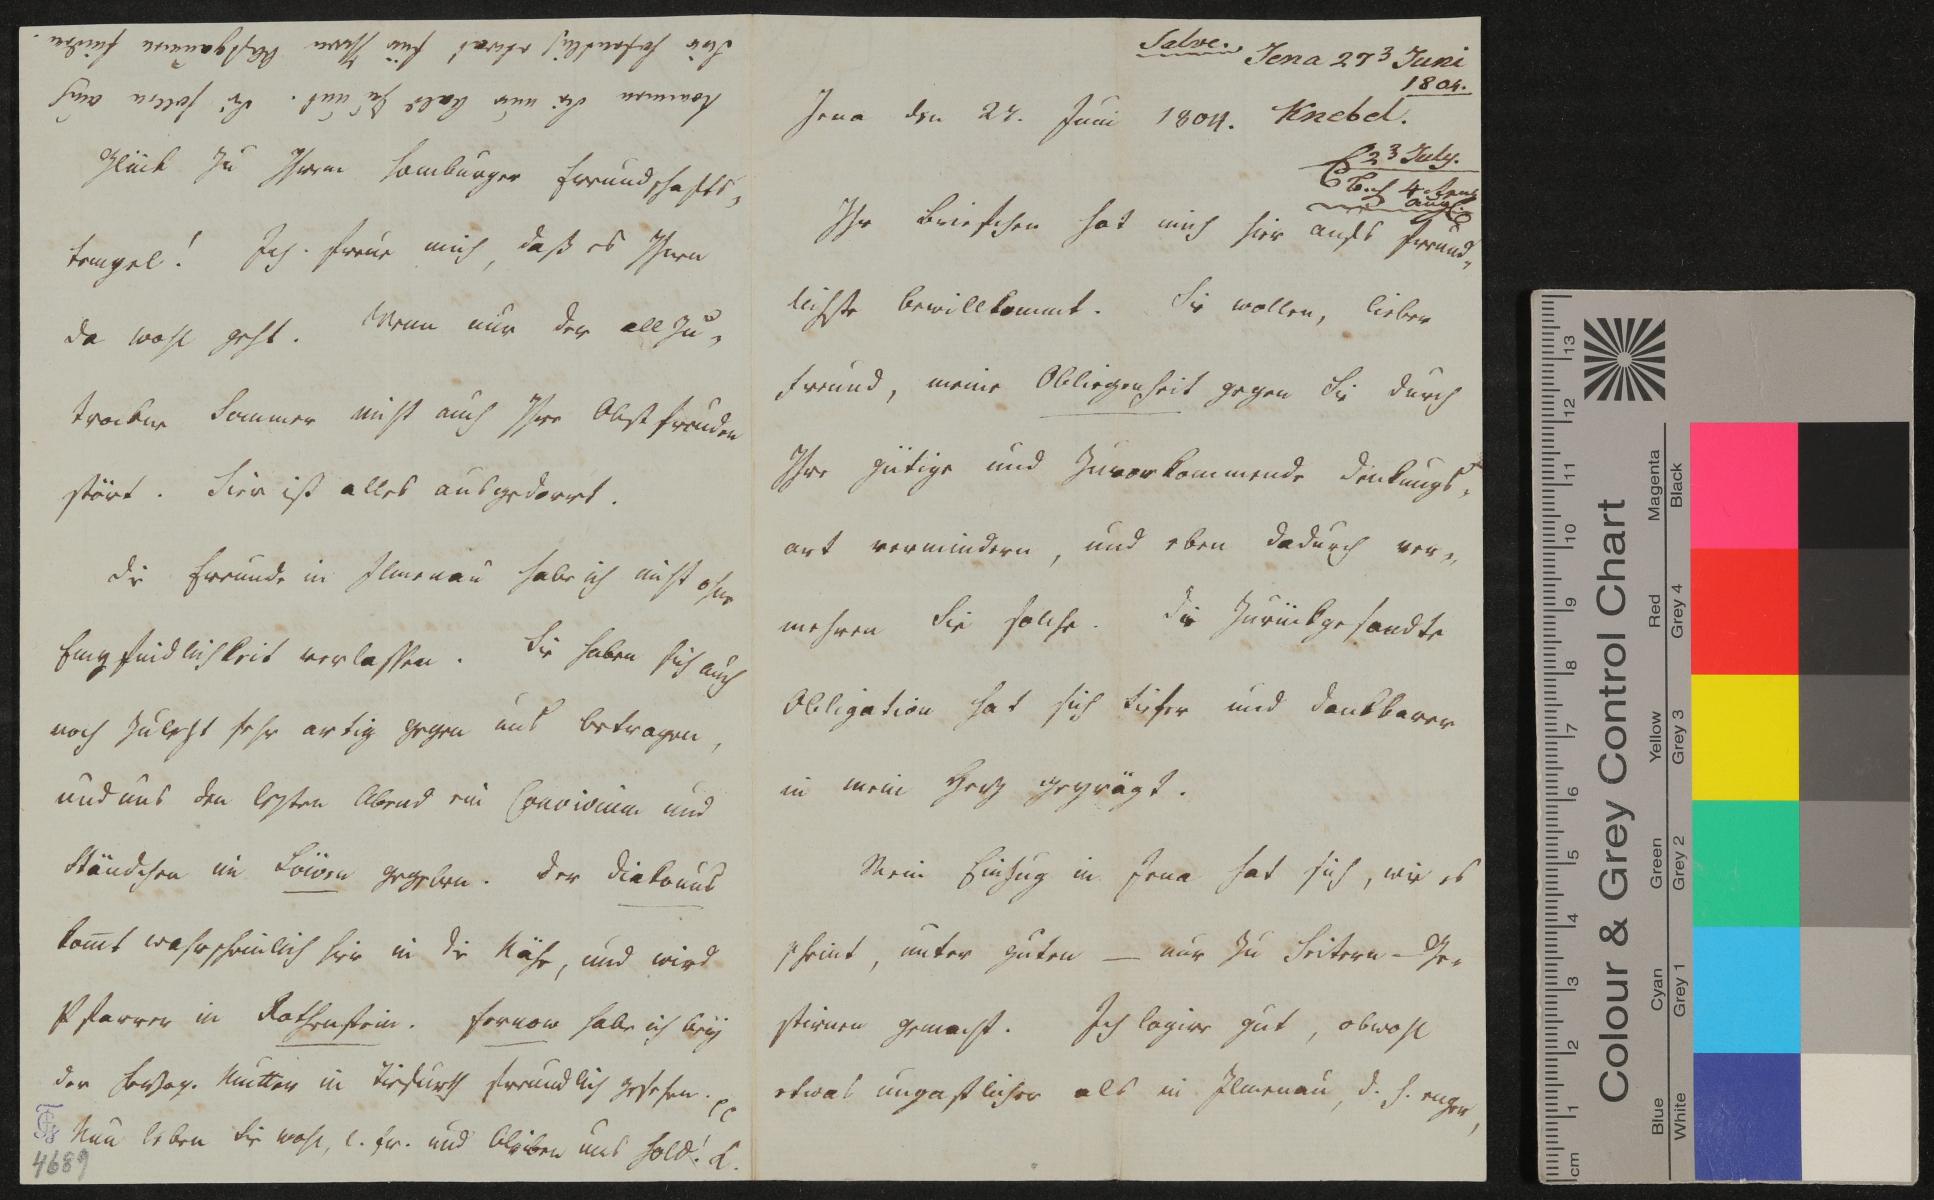 Salve.
Jena 27 3 Juni
1804.
Jena den 27. Juni 1804. Knebel.
23 July.
4
aug.
Ihr Briefchen hat mich hier aufs freund-
lichste bewillkommt. Sie wollen, lieber
Freund, meine Obliegenheit gegen Sie durch
Ihre gütige und zuvorkommende Denkungs-
art vermindern, und eben dadurch ver-
mehren Sie solche. Die zurückgesandte
Obligation hat sich tiefer und dankbarer
in mein Herz geprägt.
Mein Einzug in Jena hat sich, wie es
scheint, unter guten — nur zu heitern — Ge-
stirnen gemacht. Ich logire gut, obwohl
etwas ungastlicher als in Ilmenau, d. h. enger,
Glück zu Ihrem Homburger Freundschafts-
tempel! Ich freue mich, daß es Ihnen
da wohl geht. Wenn nur der allzu-
trockne Sommer nicht auch Ihre Obstfreuden
stört. Hier ist alles ausgedorrt.
Die Freunde in Ilmenau habe ich nicht ohne
Empfindlichkeit verlassen. Sie haben sich auch
noch zuletzt sehr artig gegen uns betragen,
und uns den letzten Abend ein Convivium und
Ständchen im Löwen gegeben. Der Diakonus
kommt wahrscheinlich hier in die Nähe, und wird
Pfarrer in Rothenstein. Fernow habe ich bey
der Herzog. Mutter in Tiefurth freundlich gesehen.
Nun leben Sie wohl, l. Fr. und bleiben uns hold! K.
Kommen Sie nur bald zu uns. Sie sollen auch
hier hoffentlich etwas für Ihren Gaumen finden.
4689
Colour & Grey Control Chart
Blue Cyan Green Yellow Red Magenta
White Grey 1 Grey 2 Grey 3 Grey 4 Black
cm 1 2 3 4 5 6 7 8 9 10 11 12 13